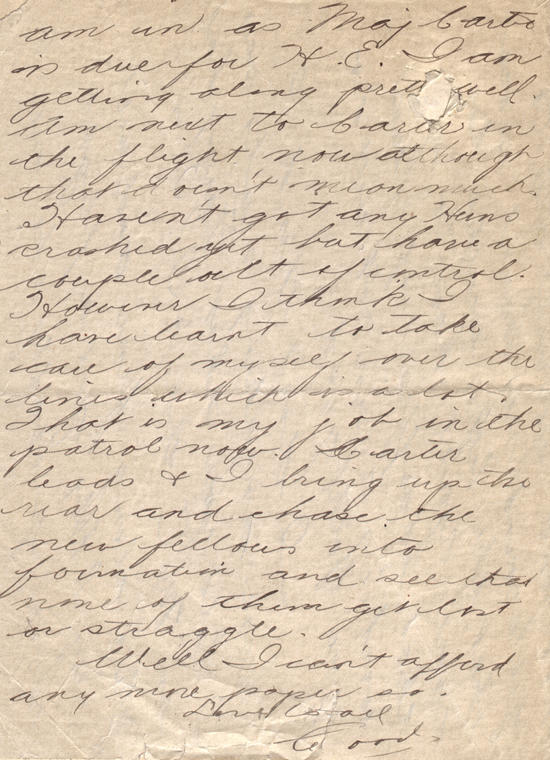 am in as Maj Carter
is due for H.E. I am
getting along pretty well.
Am next to Carter in
the flight now although
that doesn't mean much.
Haven't got any Huns
crashed yet but have a
couple out of control.
However I think I
have learnt to take
care of myself over the
lines which is a lot.
That is my job in the
patrol now. Carter
leads & I bring up the
rear and chase the
new fellows into
formation and see that
none of them get lost
or straggle.
Well I can't afford
any more paper so.
Love to all